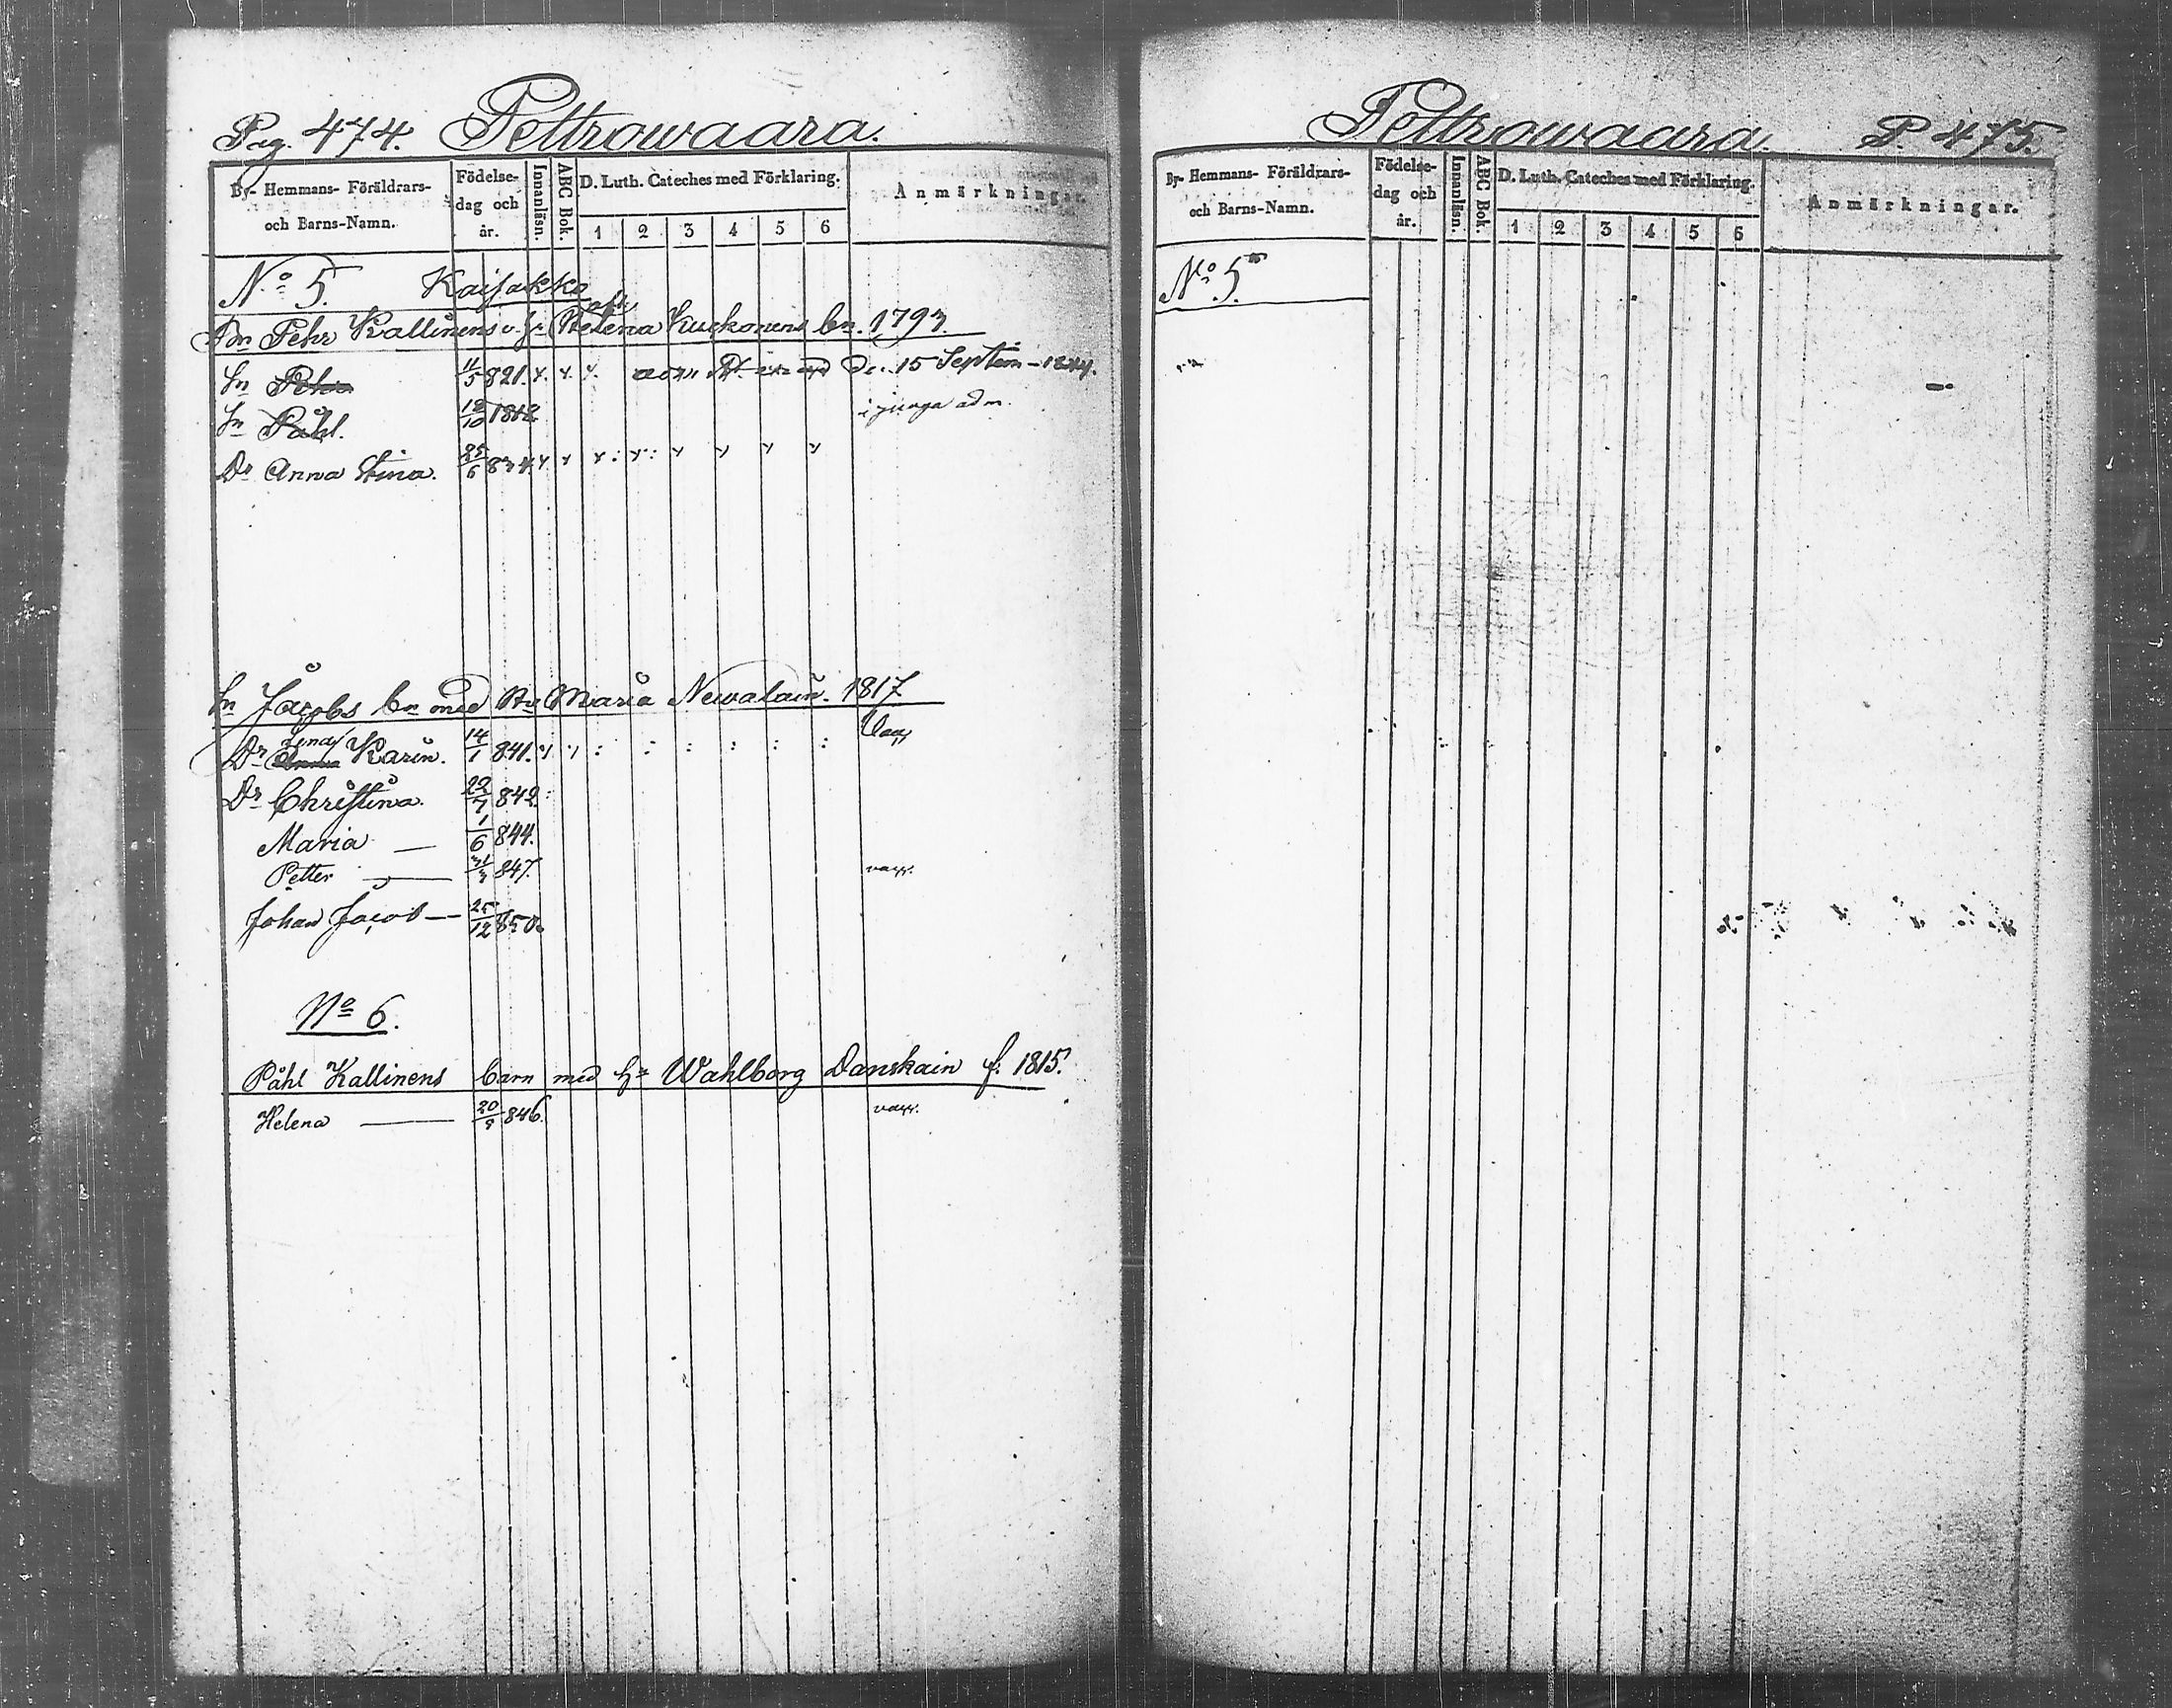 Pag. 474. Pettrowaara.
By- Hemmans- Föräldrars- och Barns-Namn.
Födelse-dag och år.
Innanläsn.
ABC Bok.
D. Luth. Cateches med Förklaring.
1 2 3 4 5 6
Anmärkningar.
No 5. Kaisakko
Bn Pehr Kallinens o. Hu Helena Kuckonens bn. 1793.
Sn Petter 821. 15 Septem - 1844.
Sn Påhl. 18/10 1818 i junga adm.
Dr Anna Stina. 25/6 834.
Sn Jacobs bn med Hu Maria Newalain. 1817
Dr Anna Lena Karin. 14/1 841. Vacc
Dr Christina. 22/7 842.
Maria — 1/6 844.
Petter — 847. vacc.
Johan Jacob — 25/12 850.
No 6.
Påhl Kallinens barn med Hu Wahlborg Danskain f. 1815.
Helena — 20/8 846. vacc.
Pettrowaara. P. 475.
By- Hemmans- Föräldrars- och Barns-Namn.
Födelse-dag och år.
Innanläsn.
ABC Bok.
D. Luth. Cateches med Förklaring.
1 2 3 4 5 6
Anmärkningar.
No 5.